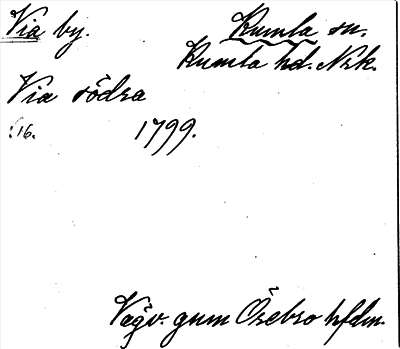 Via by. Kumla sn.
Kumla hd. Nrk.
Via södra
:16. 1799.
Vägv. gnm Örebro hfdm.